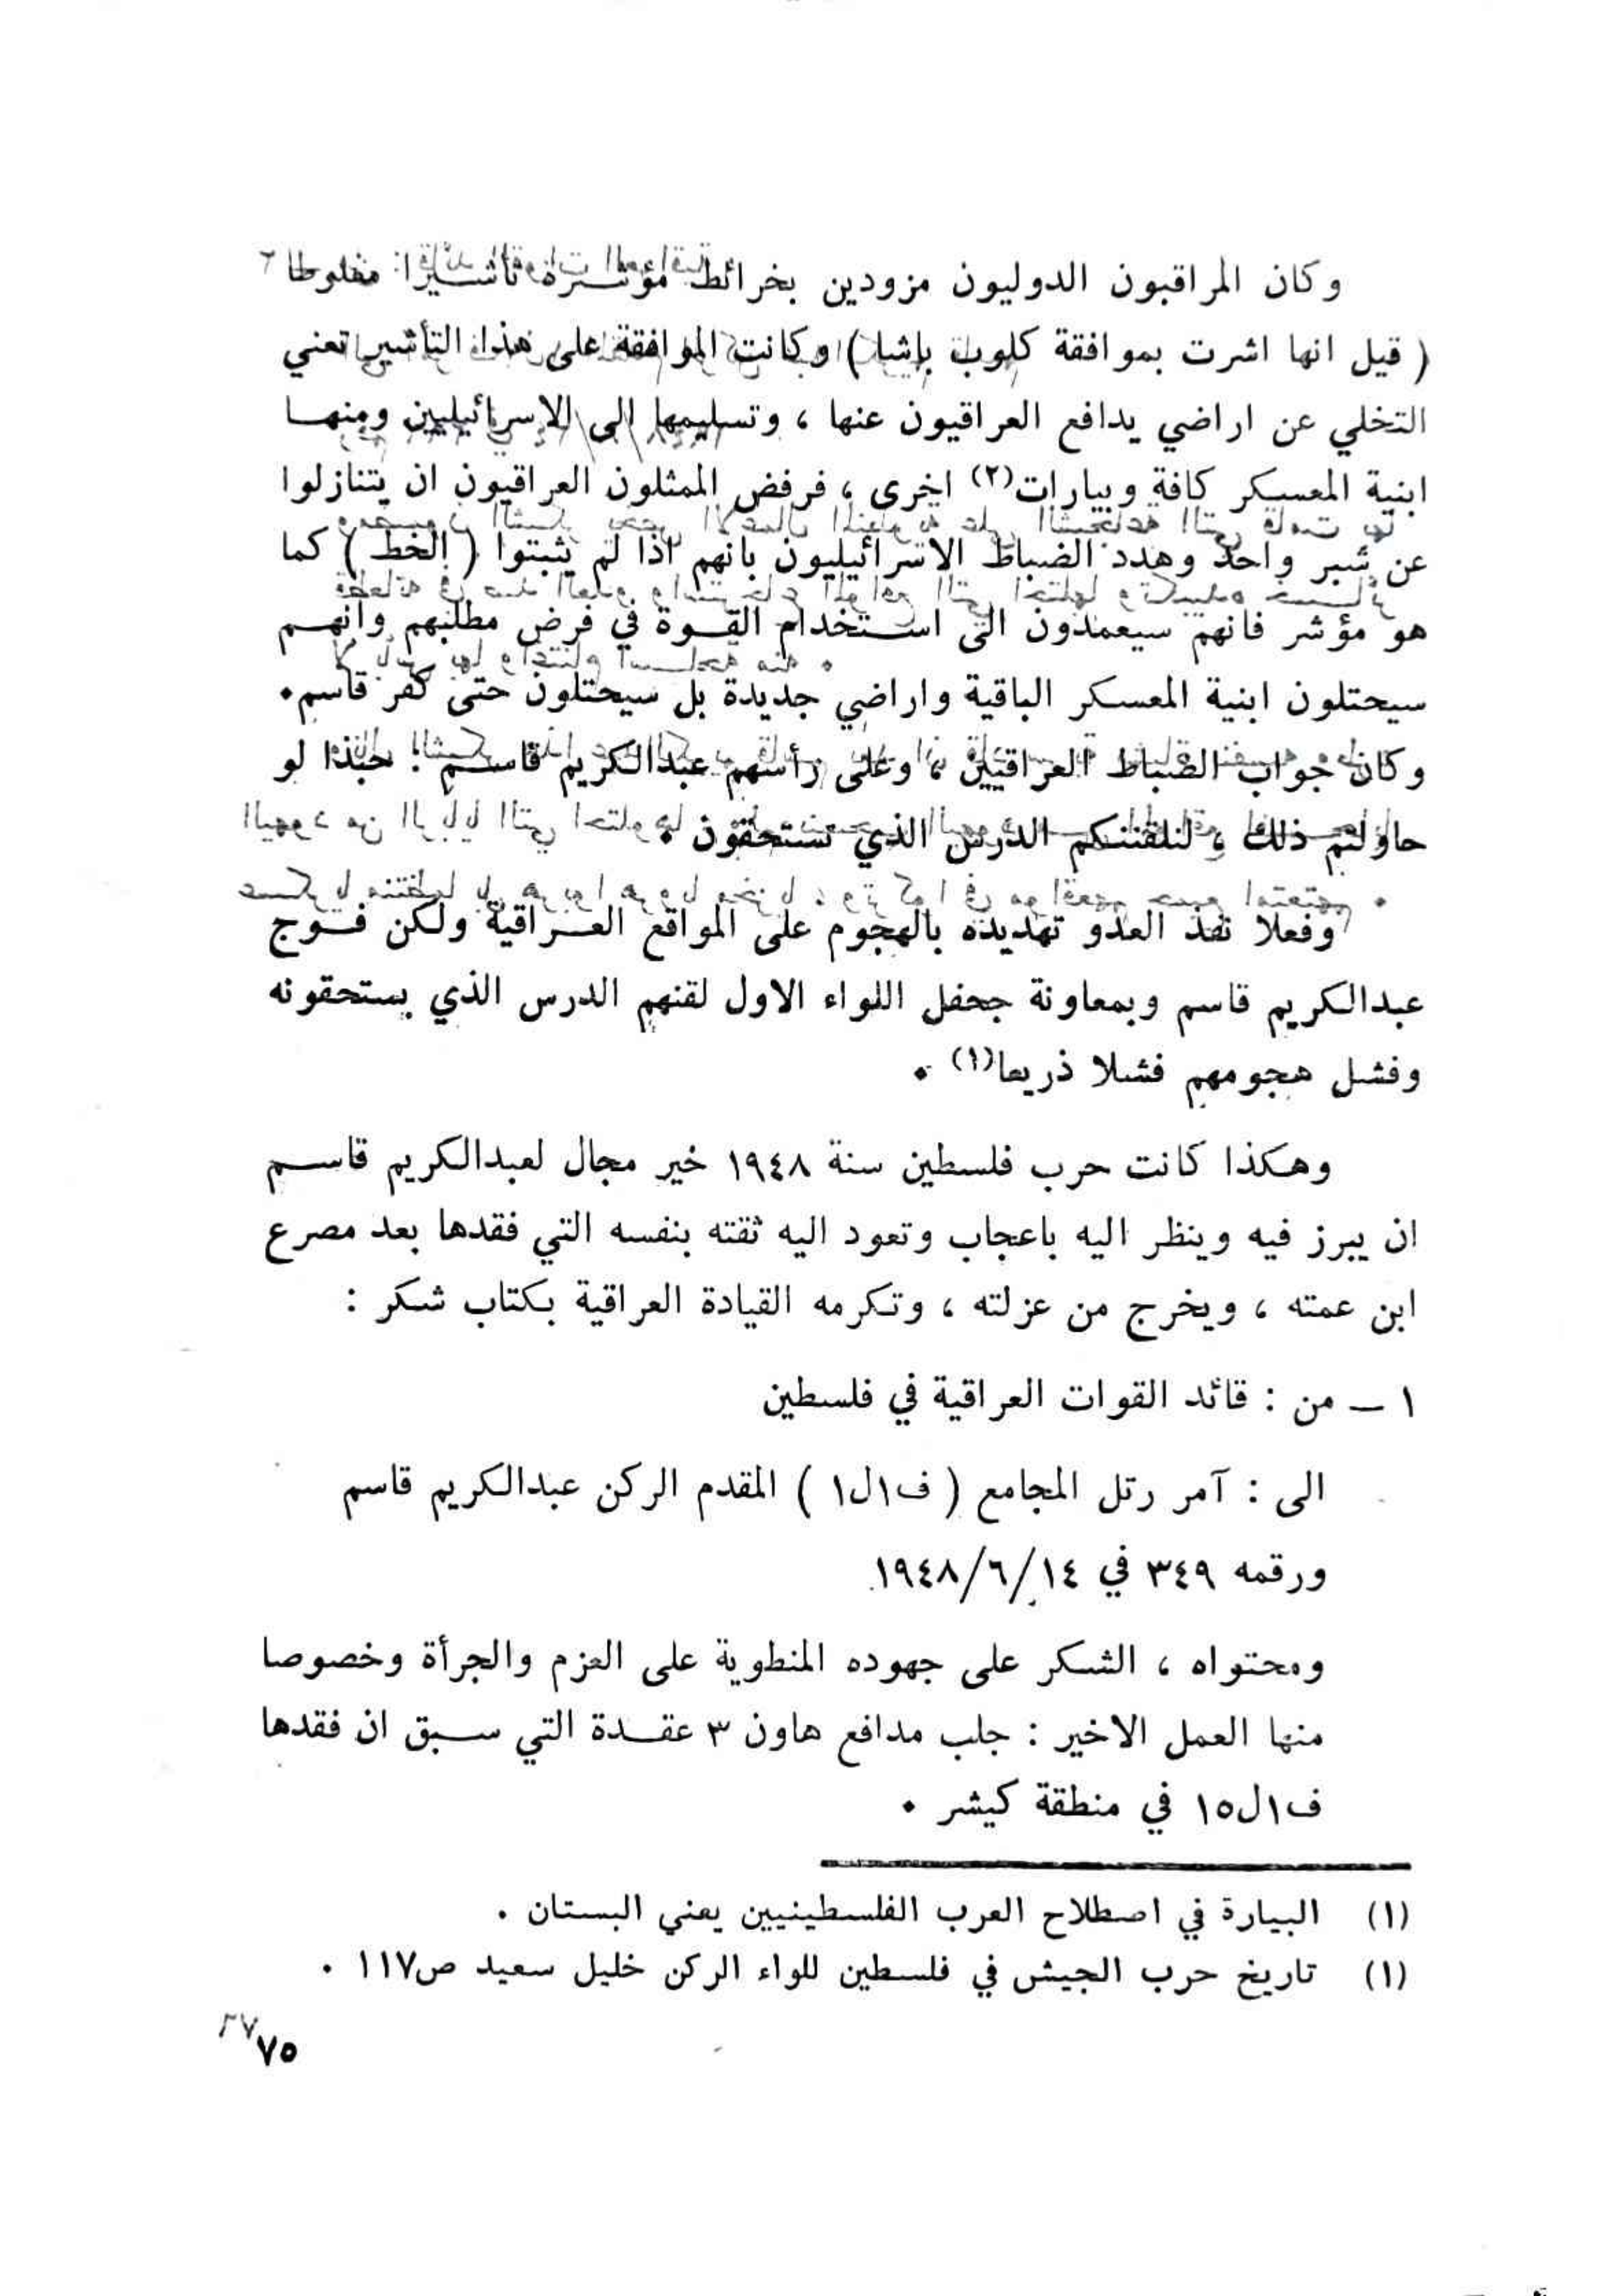 وكان المراقبون الدوليون مزودين بخرائط مؤشرة تأشيرا مغلوطا
( قيل انها اشرت بموافقة كلوب باشا ) وكانت الموافقة على هذا التأشير تعني
التخلي عن اراضي يدافع العراقيون عنها ، وتسليمها الى الاسرائيليين ومنها
ابنية المعسكر كافة وبيارات(٢) اخرى ، فرفض الممثلون العراقيون ان يتنازلوا
عن شبر واحد وهدد الضباط الاسرائيليون بانهم اذا لم يثبتوا ( الخط ) كما
هو مؤشر فانهم سيعمدون الى استخدام القوة في فرض مطلبهم وانهم
سيحتلون ابنية المعسكر الباقية واراضي جديدة بل سيحتلون حتى كفر قاسم.
وكان جواب الضباط العراقيين ، وعلى رأسهم عبدالكريم قاسم : حبذا لو
حاولتم ذلك ، لنلقننكم الدرس الذي تستحقون .
وفعلا نفذ العدو تهديده بالهجوم على المواقع العراقية ولكن فوج
عبدالكريم قاسم وبمعاونة جحفل اللواء الاول لقنهم الدرس الذي يستحقونه
وفشل هجومهم فشلا ذريعا(١) .
وهكذا كانت حرب فلسطين سنة ١٩٤٨ خير مجال لعبدالكريم قاسم
ان يبرز فيه وينظر اليه باعجاب وتعود اليه ثقته بنفسه التي فقدها بعد مصرع
ابن عمته ، ويخرج من عزلته ، وتكرمه القيادة العراقية بكتاب شكر :
١ – من : قائد القوات العراقية في فلسطين
الى : آمر رتل المجامع ( ف١ل١ ) المقدم الركن عبدالكريم قاسم
ورقمه ٣٤٩ في ١٤/٦/١٩٤٨
ومحتواه ، الشكر على جهوده المنطوية على العزم والجرأة وخصوصا
منها العمل الاخير : جلب مدافع هاون ٣ عقدة التي سبق ان فقدها
ف١ل١٥ في منطقة كيشر .
(١) البيارة في اصطلاح العرب الفلسطينيين يعني البستان .
(١) تاريخ حرب الجيش في فلسطين للواء الركن خليل سعيد ص١١٧ .
٧٥